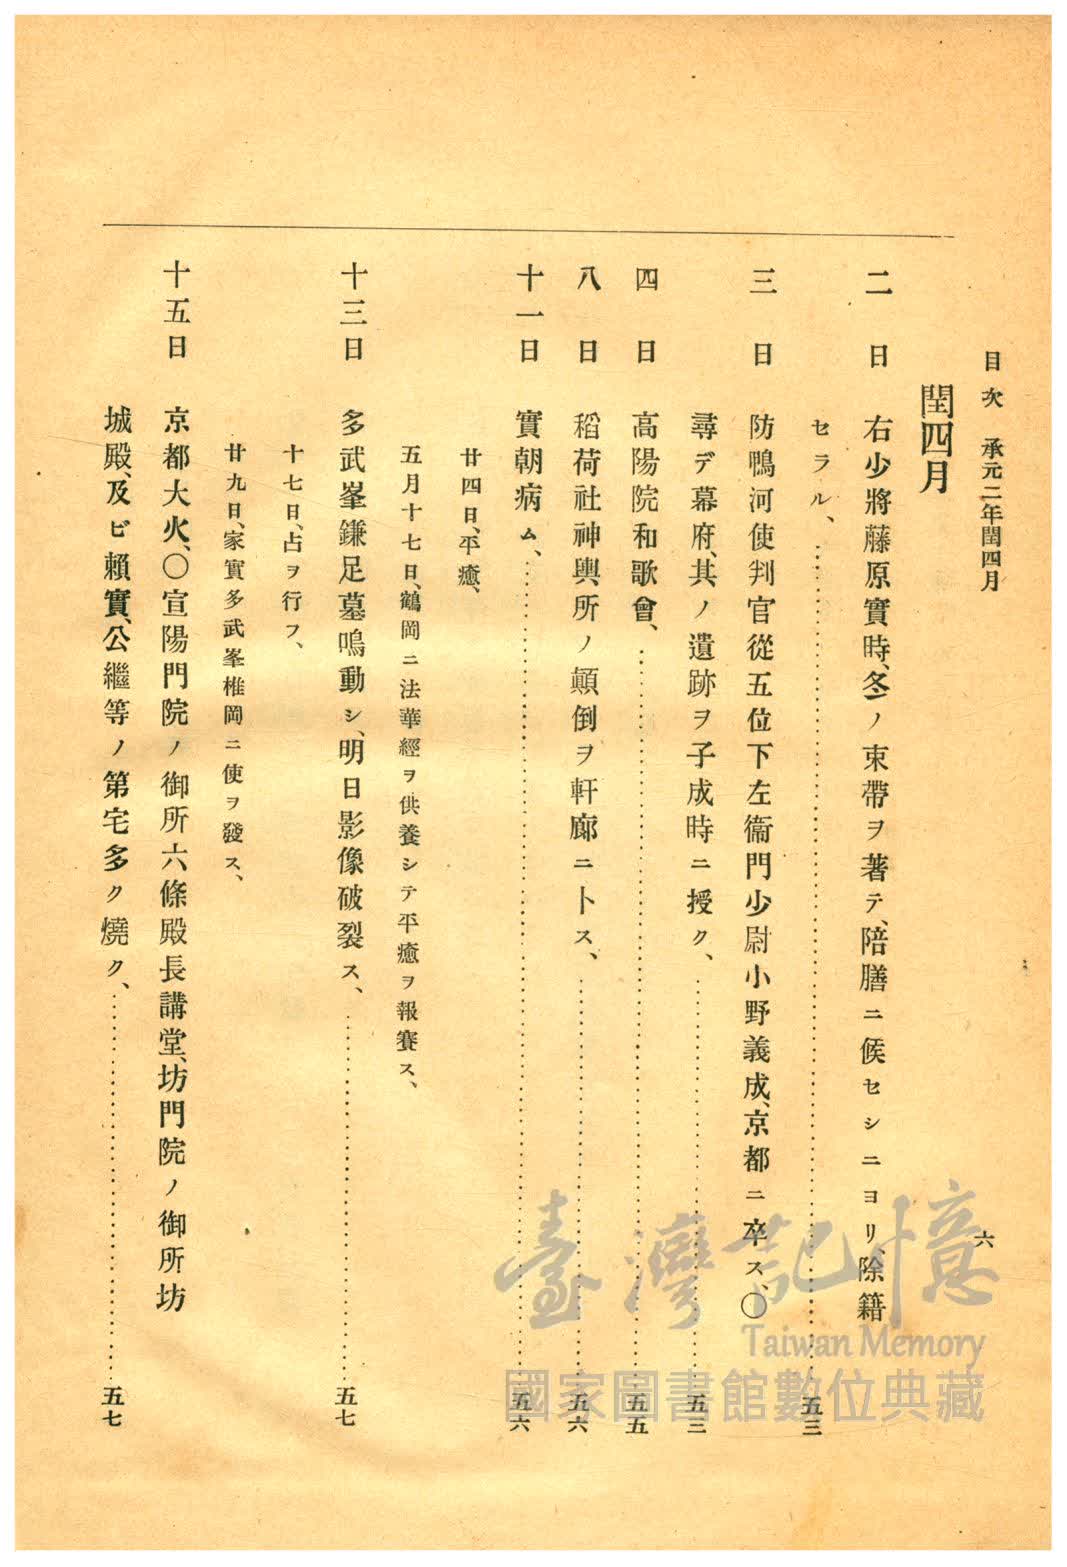 目次 承元二年閏四月 六
閏四月
二日 右少將藤原實時、冬ノ束帶ヲ著テ、陪膳ニ候セシニヨリ、除籍
セラル、 五三
三日 防鴨河使判官從五位下左衞門少尉小野義成、京都ニ卒ス、〇
尋デ幕府、其ノ遺跡ヲ子成時ニ授ク、 五三
四日 高陽院和歌會、 五五
八日 稻荷社神輿所ノ顚倒ヲ軒廊ニ卜ス、 五六
十一日 實朝病ム、 五六
廿四日、平癒、
五月十七日、鶴岡ニ法華經ヲ供養シテ平癒ヲ報賽ス、
十三日 多武峯鎌足墓鳴動シ、明日影像破裂ス、 五七
十七日、占ヲ行フ、
廿九日、家實多武峯椎岡ニ使ヲ發ス、
十五日 京都大火、〇宣陽門院ノ御所六條殿長講堂、坊門院ノ御所坊
城殿、及ビ賴實、公繼等ノ第宅多ク燒ク、 五七
臺灣記憶
Taiwan Memory
國家圖書館數位典藏